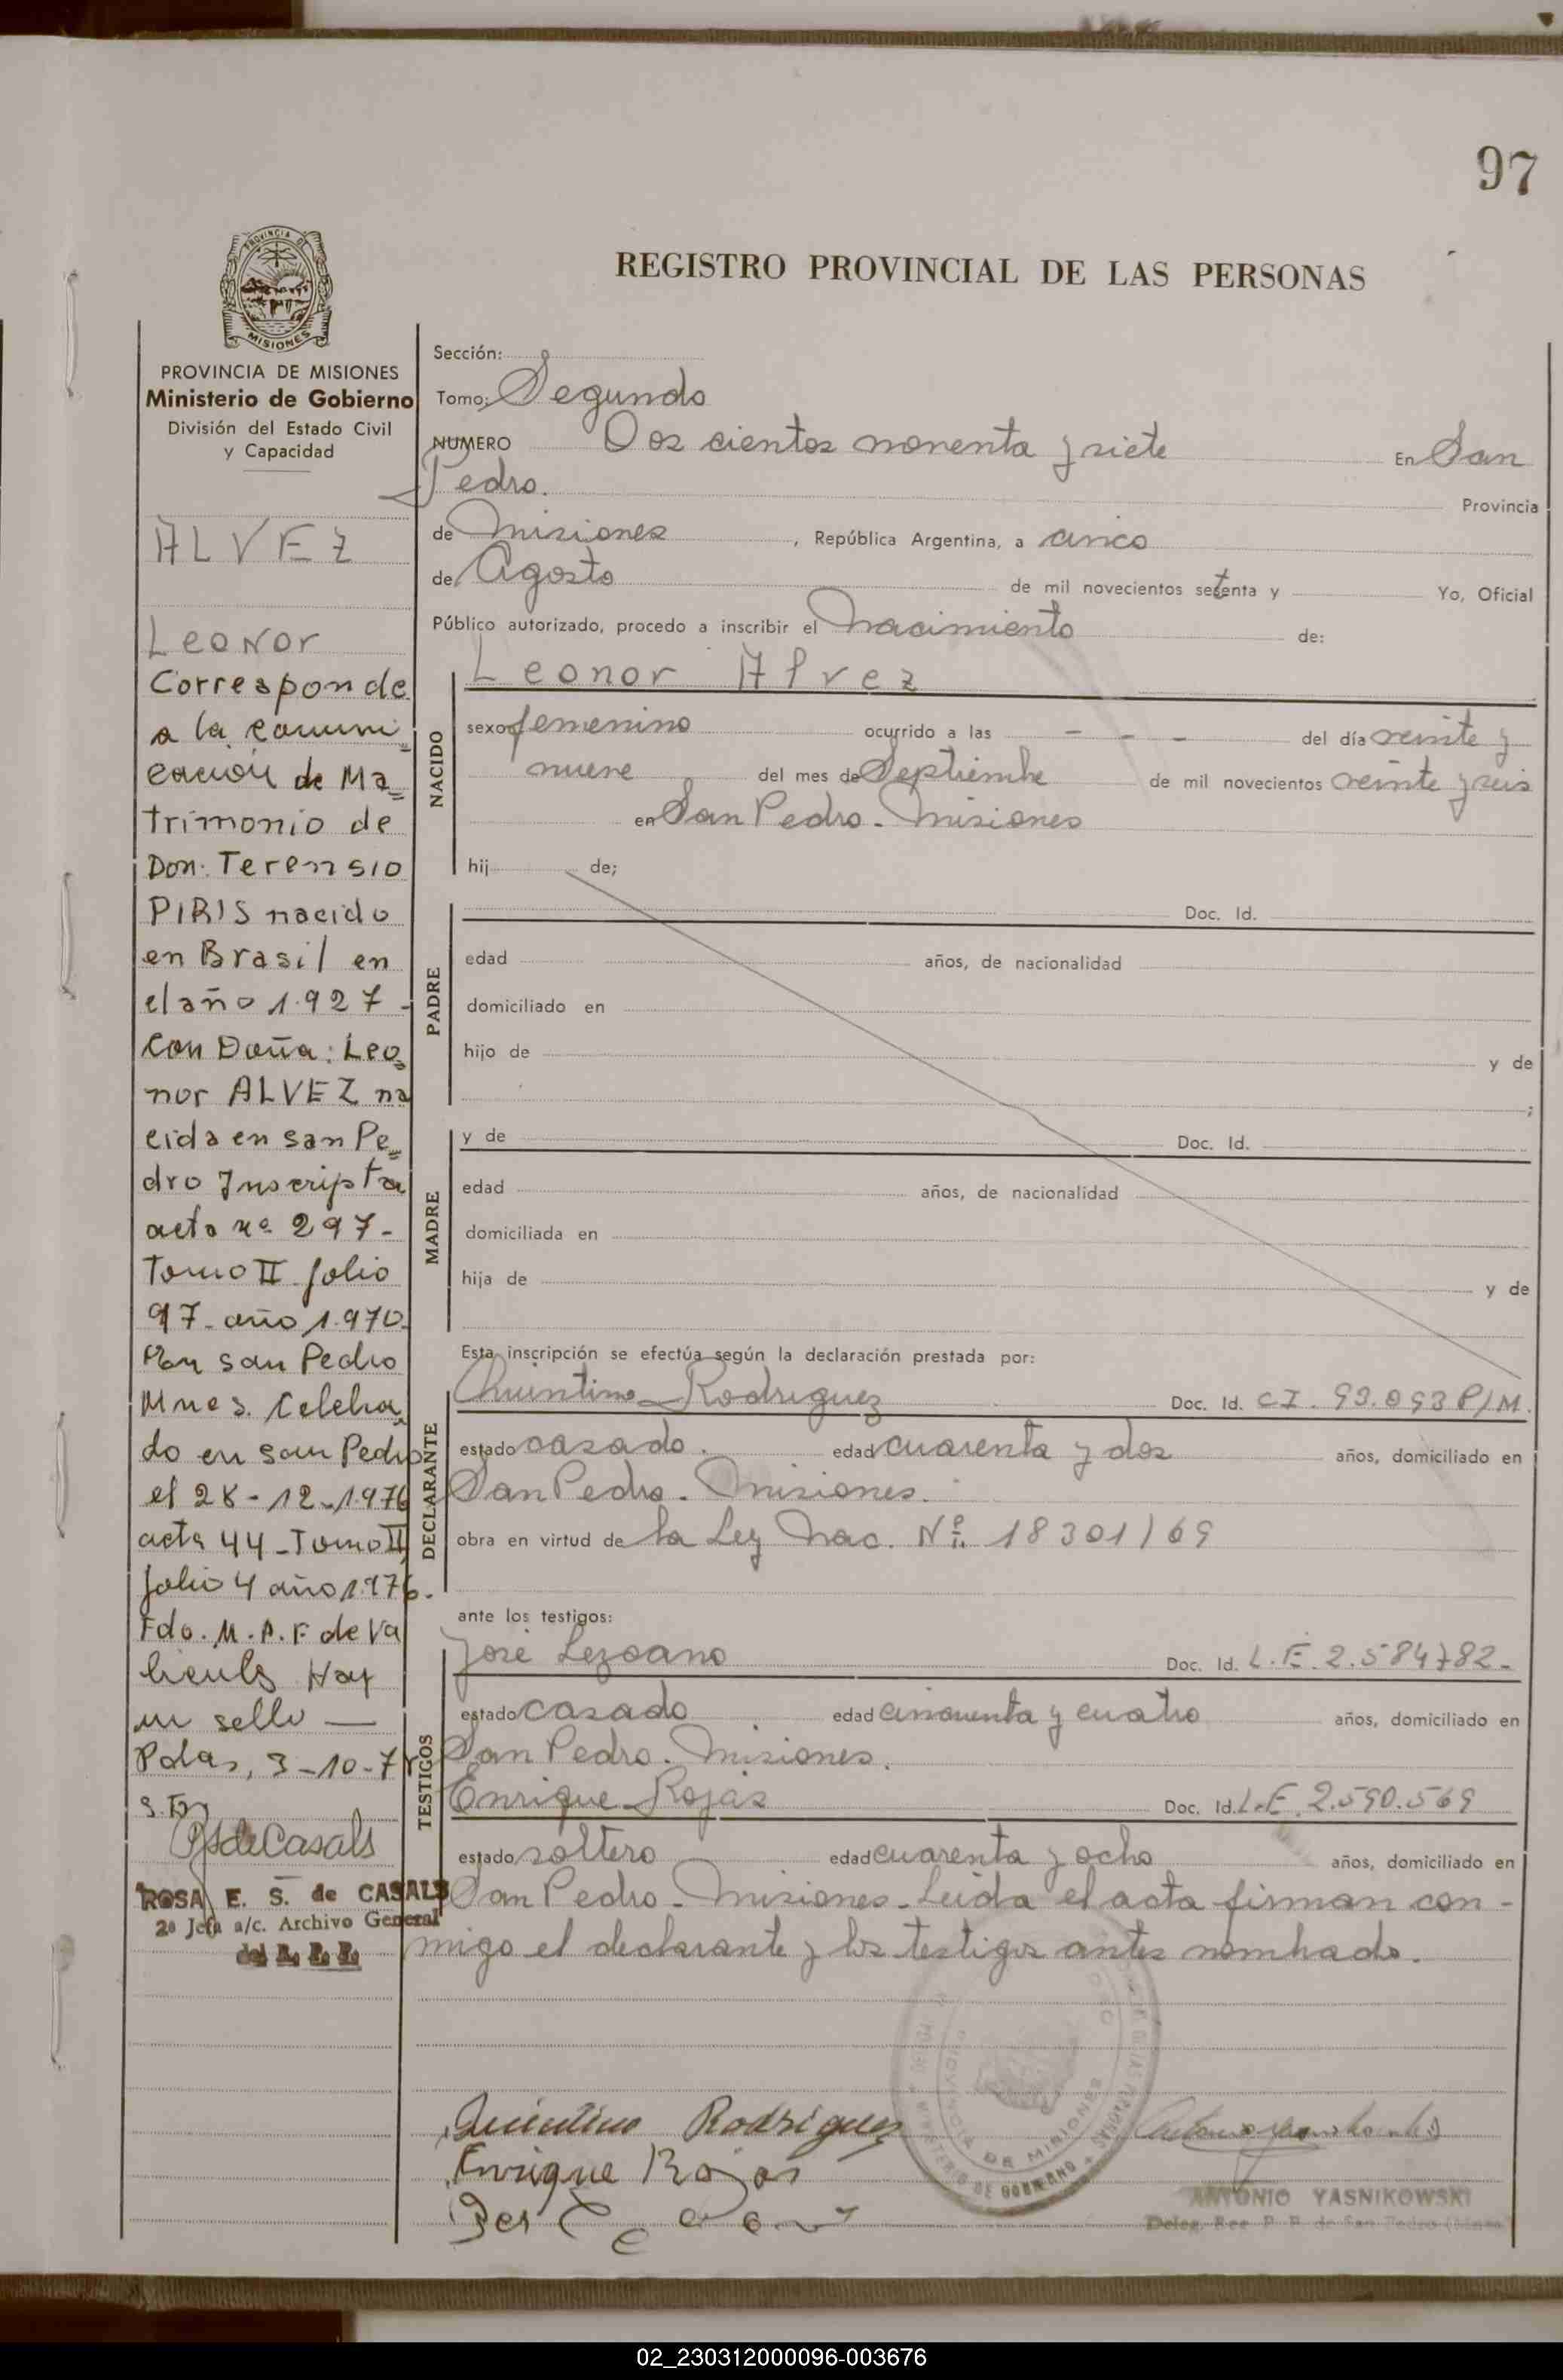 97
PROVINCIA DE
MISIONES
REGISTRO PROVINCIAL DE LAS PERSONAS
PROVINCIA DE MISIONES
Ministerio de Gobierno
División del Estado Civil
y Capacidad
ALVEZ
Leonor
Corresponde
a la comuni
cación de Ma=
trimonio de
Don: Terensio
PIRIS nacido
en Brasil en
el año 1.927-
con Doña: Leo=
nor ALVEZ na
cida en san Pe=
dro Inscripta
acta nº 297-
Tomo II folio
97- año 1.970-
san Pedro
Mnes. Celebra=
do en san Pedro
el 28-12-1976
acta 44-Tomo II
folio 4 año 1.976.
Fdo. M.A.F de Va
Hay
un sello —
Pdas, 3-10-7
ROSA E. S. de CASALS
2º Jefa a/c. Archivo General
del R. P. P.
Sección:
Tomo: Segundo
NUMERO Dos cientos noventa y siete En San
Pedro. Provincia
de Misiones, República Argentina, a cinco
de Agosto de mil novecientos setenta y Yo, Oficial
Público autorizado, procedo a inscribir el Nacimiento de:
NACIDO
Leonor Alvez
sexo femenino ocurrido a las - - - del día veinte y
nueve del mes de Septiembre de mil novecientos veinte y seis
en San Pedro - Misiones
hij de;
PADRE
Doc. Id.
edad años, de nacionalidad
domiciliado en
hijo de y de
;
MADRE
y de Doc. Id.
edad años, de nacionalidad
domiciliada en
hija de y de
Esta inscripción se efectúa según la declaración prestada por:
DECLARANTE
Quintino Rodriguez Doc. Id. C I. 93.093 P/M.
estado casado. edad cuarenta y dos años, domiciliado en
San Pedro - Misiones.
obra en virtud de la Ley Nac. Nº 18301/69
ante los testigos:
TESTIGOS
José Lezcano Doc. Id. L.E. 2.584782-
estado casado edad cincuenta y cuatro años, domiciliado en
San Pedro - Misiones.
Enrique Rojas Doc. Id. L.E. 2.590.569
estado soltero edad cuarenta y ocho años, domiciliado en
San Pedro - Misiones - Leida el acta firman con-
migo el declarante y los testigos antes nombrado.
PROVINCIA DE MISIONES
MINISTERIO DE GOBIERNO
Quintino Rodriguez
Enrique Rojas
ANTONIO YASNIKOWSKI
02_230312000096-003676